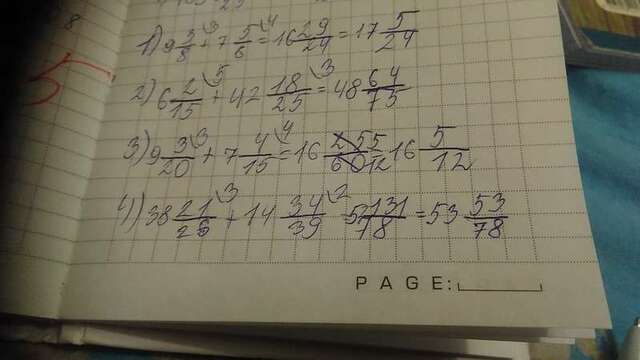 8
5
1) 9 3/8 \3 + 7 5/6 \4 = 16 29/24 = 17 5/24
2) 6 2/15 \5 + 42 18/25 \3 = 48 64/75
3) 9 3/20 \3 + 7 4/15 \4 = 16 255/6012 16 5/12
4) 38 21/26 \3 + 14 34/39 \2 52 131/78 = 53 53/78
PAGE: